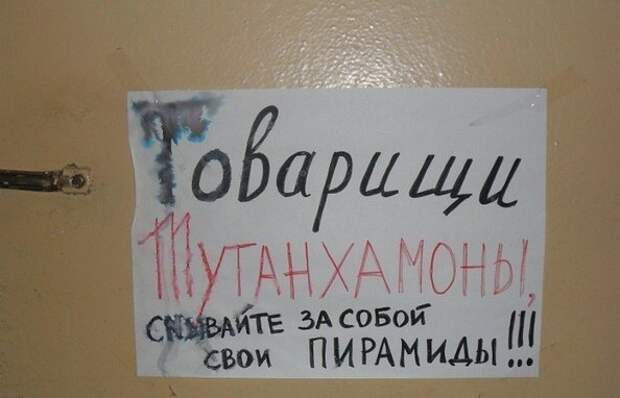 Товарищи
ТУТАНХАМОНЫ,
СМЫВАЙТЕ ЗА СОБОЙ
СВОИ ПИРАМИДЫ!!!